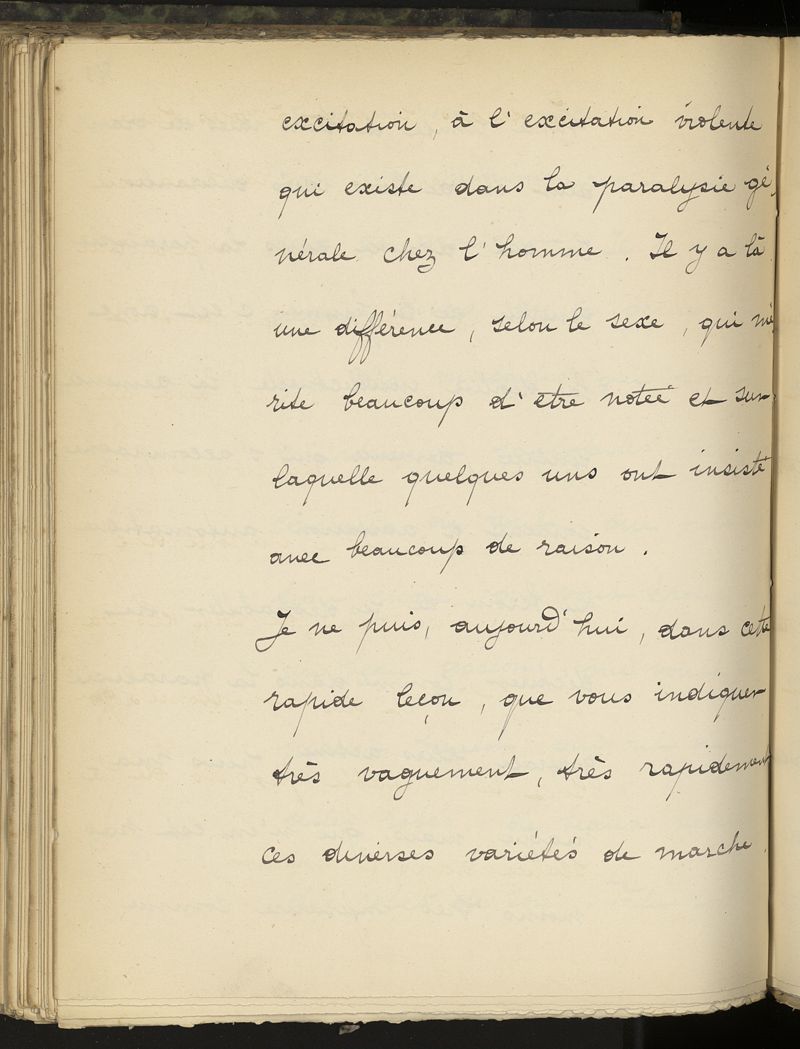 excitation, à l'excitation violente
qui existe dans la paralysie gé
nérale chez l'homme. Il y a là
une différence, selon le sexe, qui mé
rite beaucoup d'être notée et sur
laquelle quelques uns ont insisté
avec beaucoup de raison.
Je ne puis, aujourd'hui, dans cette
rapide leçon, que vous indiquer
très vaguement, très rapidement
ces diverses variétés de marche.